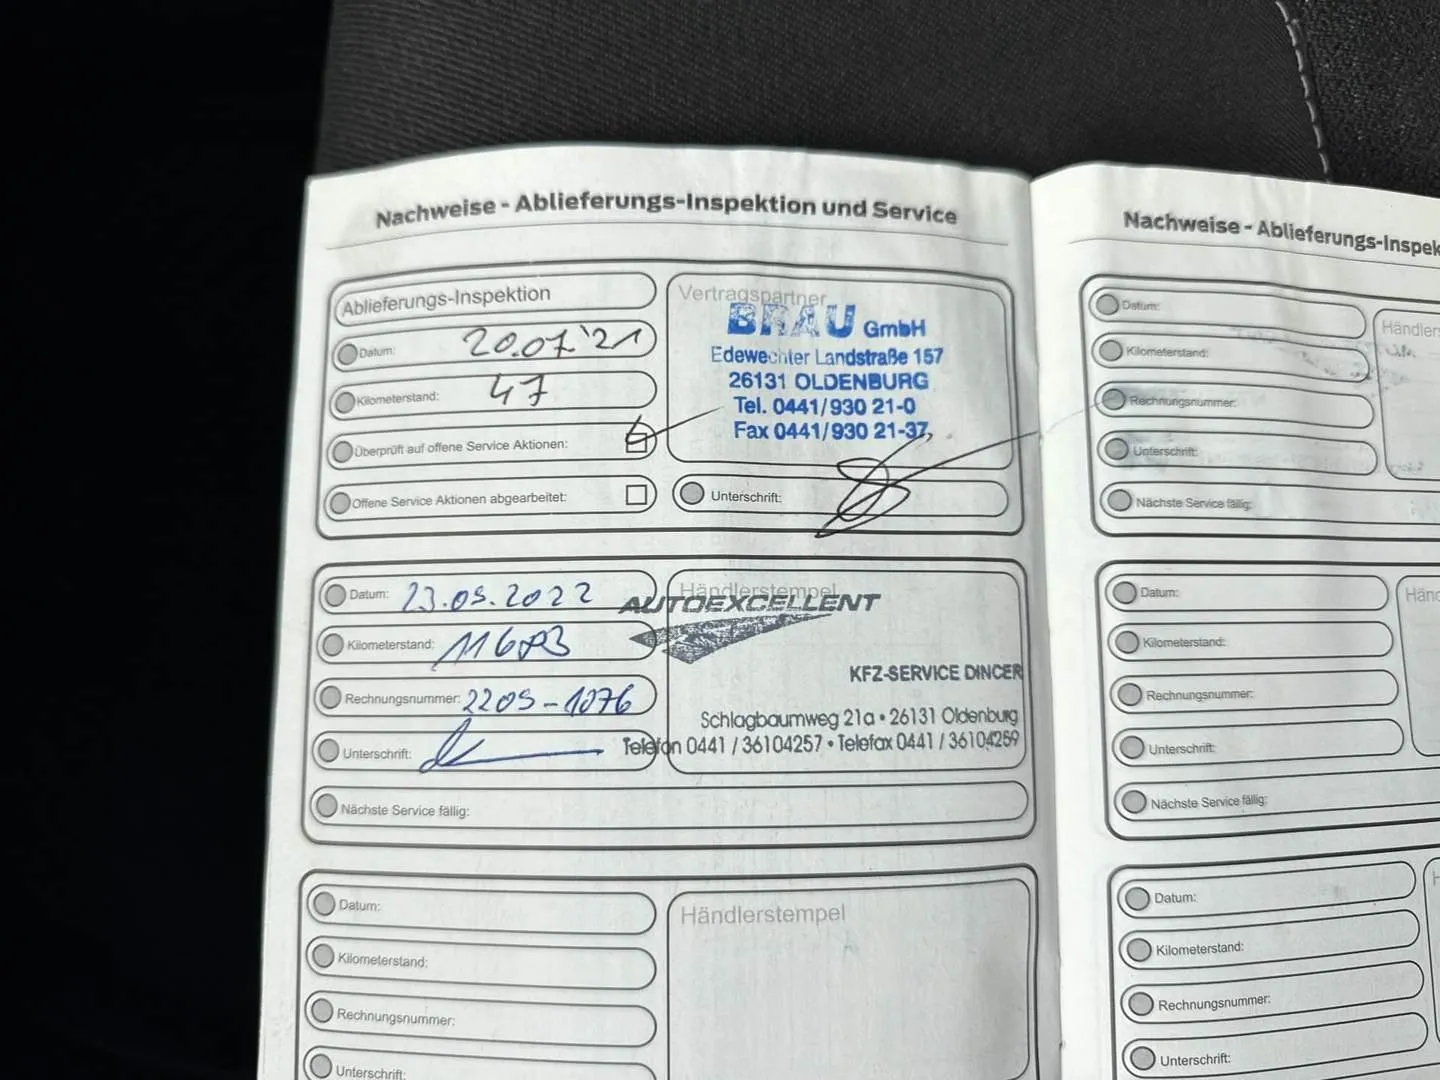 Nachweise - Ablieferungs-Inspektion und Service
Ablieferungs-Inspektion
Datum: 20.07.'21
Kilometerstand: 47
Überprüft auf offene Service Aktionen:
Offene Service Aktionen abgearbeitet:
Vertragspartner
BRAU GmbH
Edewechter Landstraße 157
26131 OLDENBURG
Tel. 0441/930 21-0
Fax 0441/930 21-37
Unterschrift:
Datum: 23.05.2022
Kilometerstand:
Rechnungsnummer: 2205-1076
Unterschrift:
Händlerstempel
AUTOEXCELLENT
KFZ-SERVICE DINCER
Schlagbaumweg 21a • 26131 Oldenburg
Telefon 0441 / 36104257 • Telefax 0441 / 36104259
Nächste Service fällig:
Datum:
Kilometerstand:
Rechnungsnummer:
Unterschrift:
Händlerstempel
Nachweise - Ablieferungs-Inspek
Datum:
Kilometerstand:
Rechnungsnummer:
Unterschrift:
Nächste Service fällig:
Händlers
Datum:
Kilometerstand:
Rechnungsnummer:
Unterschrift:
Nächste Service fällig:
Händ
Datum:
Kilometerstand:
Rechnungsnummer:
Unterschrift:
H